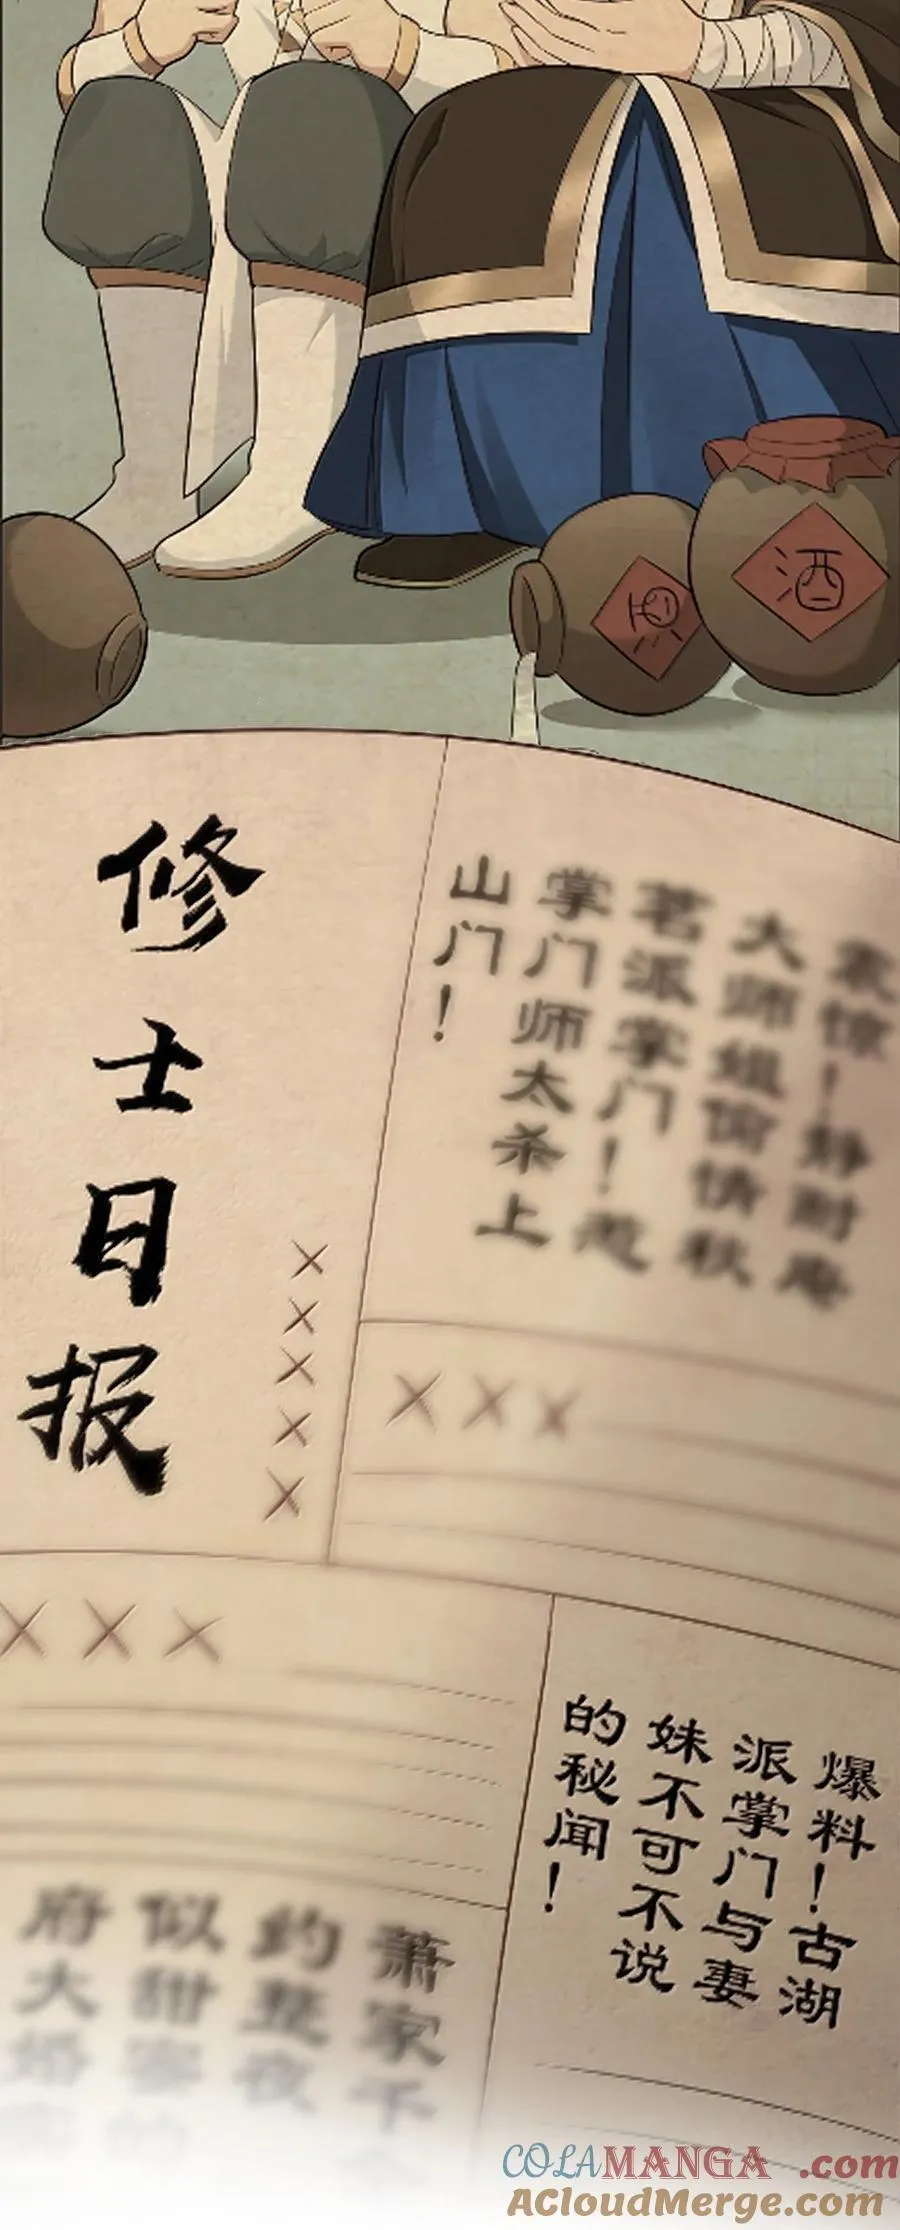 酒
酒
修士日报
×××××
震惊！静耐庵
大师姐偷情秋
茗派掌门！惹
掌门师太杀上
山门！
×××
×××
爆料！古湖
派掌门与妻
妹不可不说
的秘闻！
萧家千
约整夜
似甜蜜的
府大婚
COLAMANGA.com
ACloudMerge.com